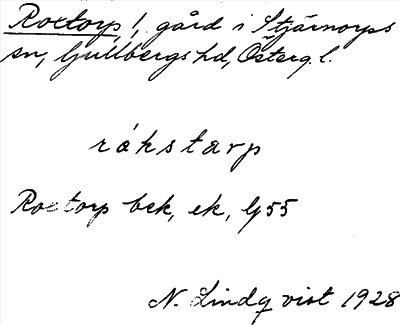 Roxtorp, !, gård i Stjärnorps
sn, Gullbergs hd, Österg. l.
råkstarp
Roxtorp bek, ek, Gg 55
N. Lindqvist 1928